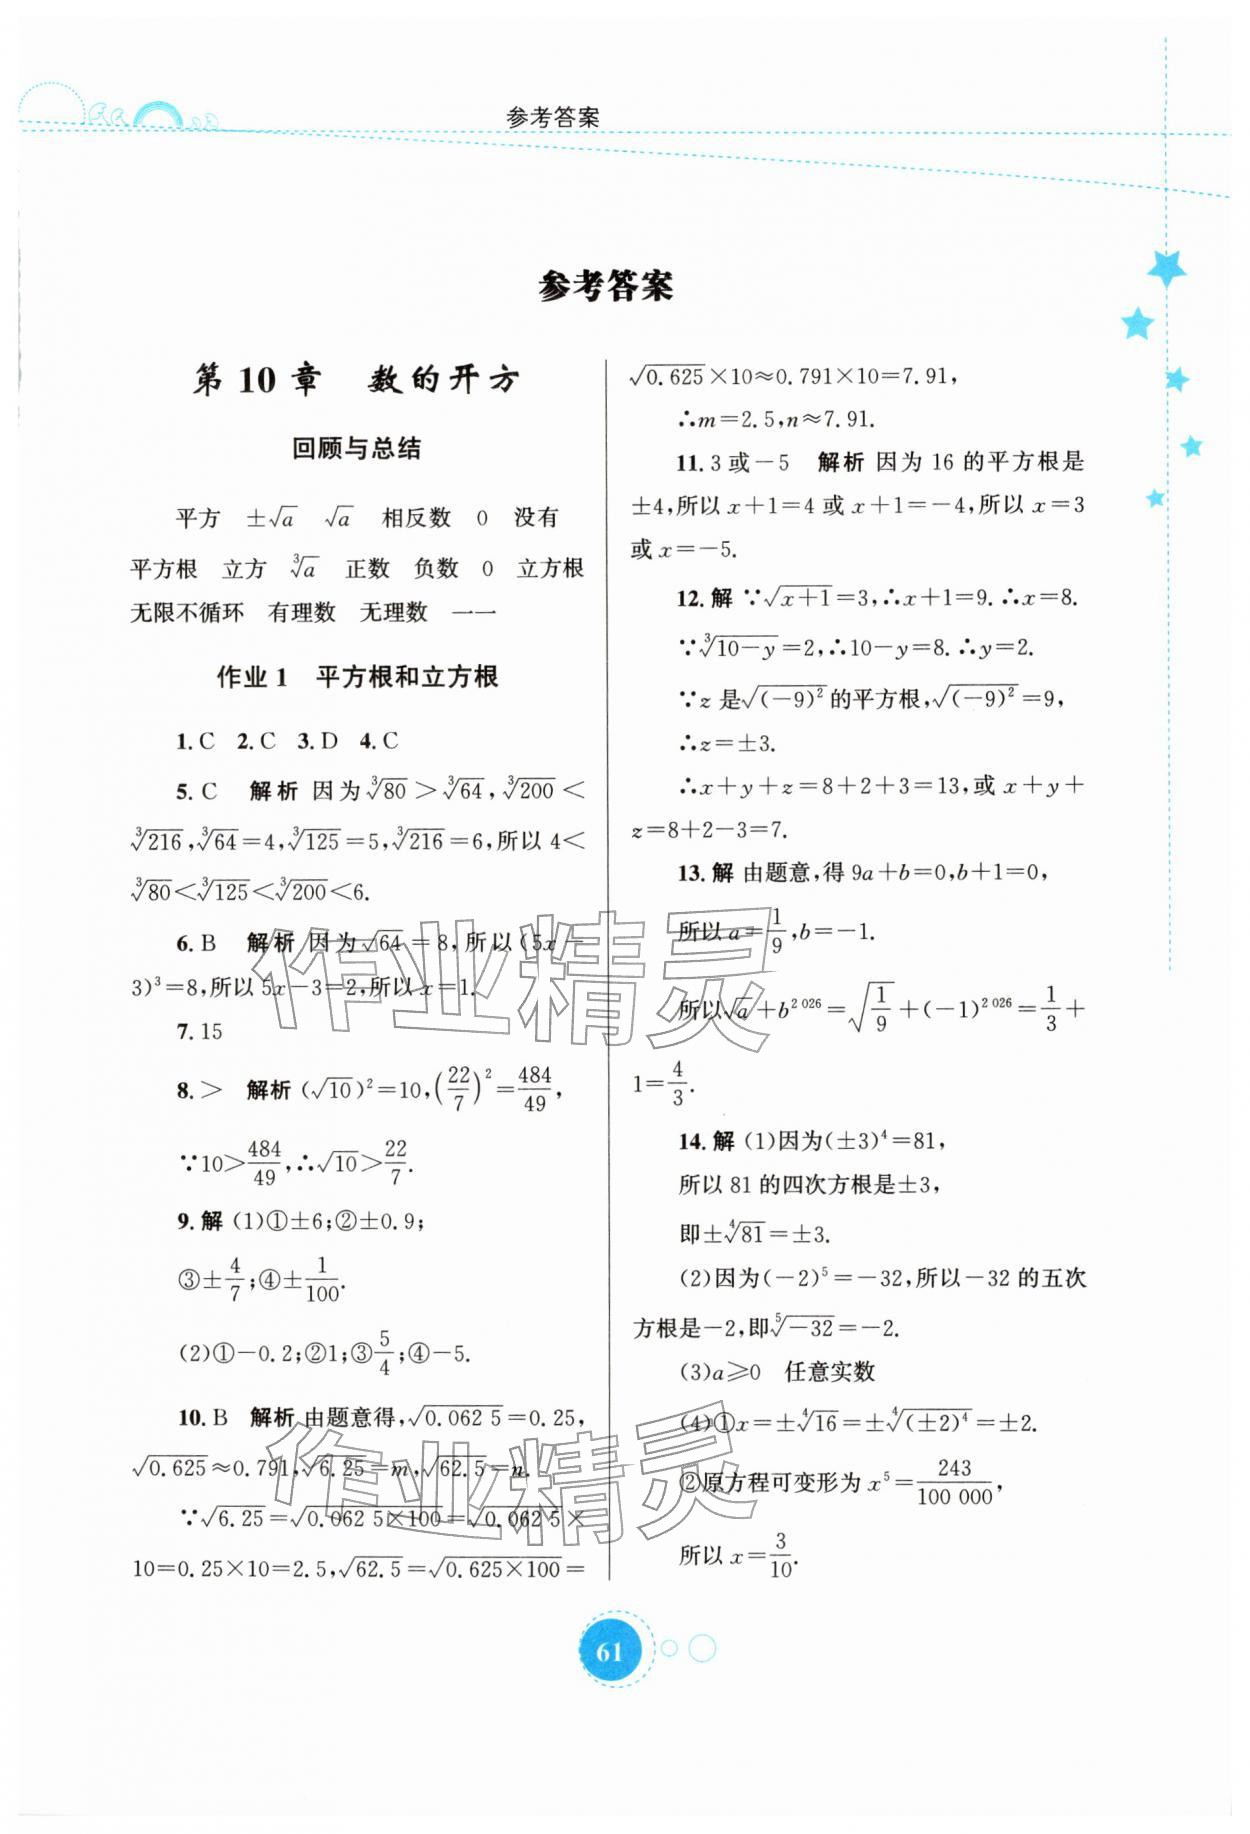 参考答案
参考答案
第 10 章 数的开方
回顾与总结
平方 ±√a √a 相反数 0 没有
平方根 立方 ∛a 正数 负数 0 立方根
无限不循环 有理数 无理数 一一
作业 1 平方根和立方根
1. C 2. C 3. D 4. C
5. C 解析 因为∛80＞∛64,∛200＜
∛216,∛64=4,∛125=5,∛216=6,所以 4＜
∛80＜∛125＜∛200＜6.
6. B 解析 因为√64=8,所以(5x−
3)³=8,所以 5x−3=2,所以 x=1.
7. 15
8. ＞ 解析 (√10)²=10,(22/7)²=484/49,
∵10＞484/49,∴√10＞22/7.
9. 解 (1)①±6;②±0.9;
③±4/7;④±1/100.
(2)①−0.2;②1;③5/4;④−5.
10. B 解析 由题意得,√0.062 5=0.25,
√0.625≈0.791,√6.25=m,√62.5=n.
∵√6.25=√0.062 5×100=√0.062 5×
10=0.25×10=2.5,√62.5=√0.625×100=
√0.625×10≈0.791×10=7.91,
∴m=2.5,n≈7.91.
11. 3 或−5 解析 因为 16 的平方根是
±4,所以 x+1=4 或 x+1=−4,所以 x=3
或 x=−5.
12. 解 ∵√x+1=3,∴x+1=9.∴x=8.
∵∛10−y=2,∴10−y=8.∴y=2.
∵z 是√(−9)²的平方根,√(−9)²=9,
∴z=±3.
∴x+y+z=8+2+3=13,或 x+y+
z=8+2−3=7.
13. 解 由题意,得 9a+b=0,b+1=0,
所以 a=1/9,b=−1.
所以√a+b^2 026=√1/9+(−1)^2 026=1/3+
1=4/3.
14. 解 (1)因为(±3)⁴=81,
所以 81 的四次方根是±3,
即±∜81=±3.
(2)因为(−2)⁵=−32,所以−32 的五次
方根是−2,即⁵√−32=−2.
(3)a≥0 任意实数
(4)①x=±∜16=±∜(±2)⁴=±2.
②原方程可变形为 x⁵=243/100 000,
所以 x=3/10.
61
作业精灵
作业精灵